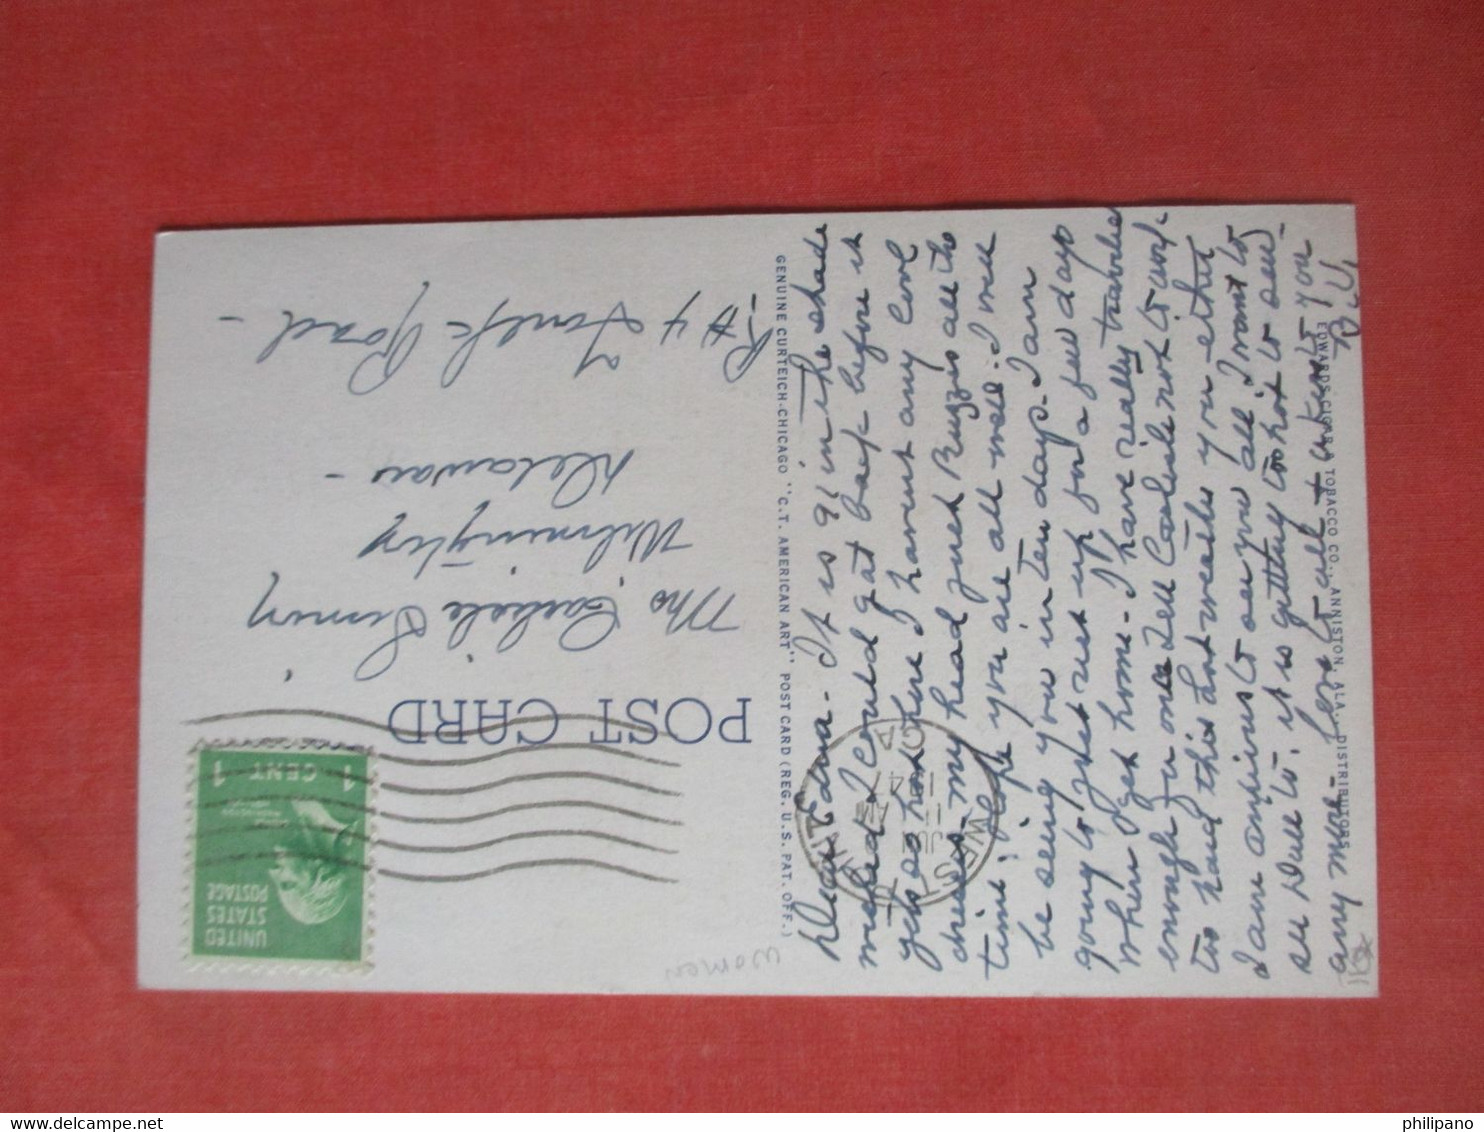 POST CARD
UNITED
STATES
POSTAGE
1 CENT 1
WEST POINT
JUL
11
AM
1947
GA
Mrs Carlisle
Wilmington
Delaware -
R-#4 Road -
women
GENUINE CURTEICH-CHICAGO "C.T. AMERICAN ART" POST CARD (REG. U.S. PAT. OFF.)
Dear Edna - It is 91 in the shade
I wish I could get back before it
gets so hot here I havent any cool
dresses - my head just Buzzes all the
time. I hope you are all well. I will
be seeing you in ten days - I am
going to just rest up for a few days
when I get home - I have really traveled
enough for once. Tell Carlisle not to work
too hard this hot weather you either
I am anxious to see you all I want to
see it is getting too hot to sew
any more - Love to all + a kiss to you
EDWARDS CIGAR & TOBACCO CO., ANNISTON, ALA., DISTRIBUTORS
philipano